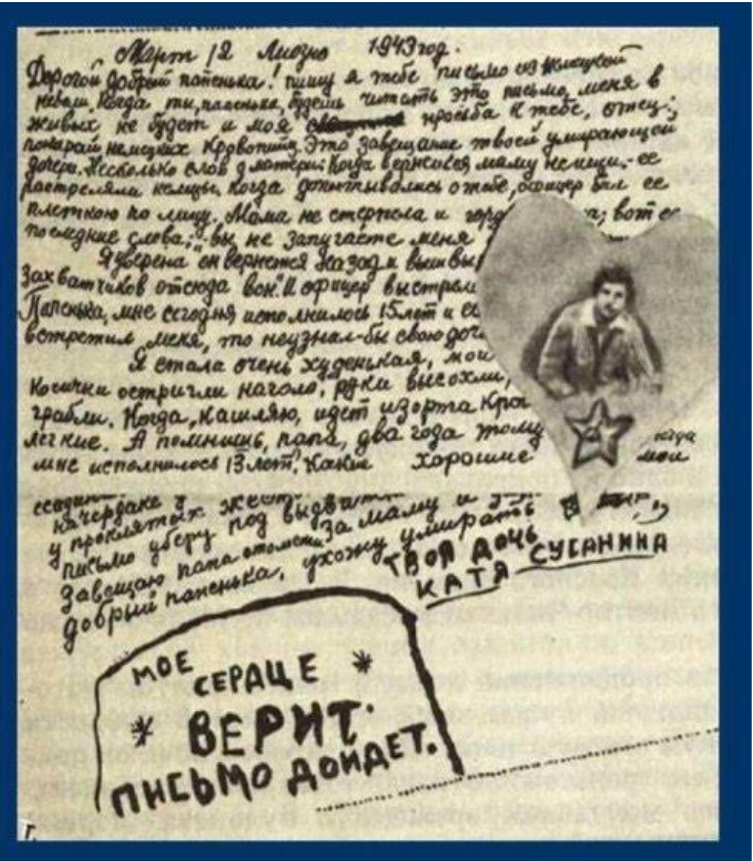 Март, 12 Лиозно 1943 год.
Дорогой добрый папенька! пишу я тебе письмо из немецкой
неволи. Когда ты, папенька, будешь читать это письмо, меня в
живых не будет и моя просьба к тебе, отец;
покарай немецких кровопийц. Это завещание твоей умирающей
дочери. Несколько слов о матери: Когда вернешься маму не ищи.- ее
растреляли немцы. Когда допытывались о тебе, офицер бил ее
плеткою по лицу. Мама не стерпела и горд вот ее
последние слова; „вы не запугаете меня
Я уверена он вернется назад и вышвы
захватчиков отсюда вон." И офицер выстрел
Папенька, мне сегодня исполнилось 15 лет и ес
встретил меня, то неузнал-бы свою доч
Я стала очень худенькая, мои
косички остригли наголо, руки высохли,
грабли. Когда, кашляю, идет изорта кро
легкие. А помнишь, папа, два года тому когда
мне исполнилось 13 лет! Какие хорошие мои
на чердаке
у проклятых жест
письмо уберу под
завещаю папа отомсти за маму и
добрый папенька, ухожу умирать
ТВОЯ ДОЧЬ
КАТЯ СУСАНИНА
МОЕ
СЕРДЦЕ
ВЕРИТ:
ПИСЬМО ДОЙДЕТ.
г.